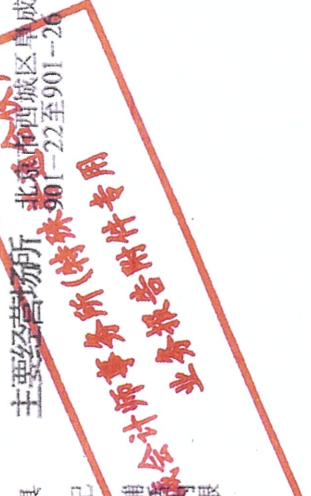 主要经营场所 北京市西城区阜成
901-22至901-26
会计师事务所(特殊
业务报告附件专用